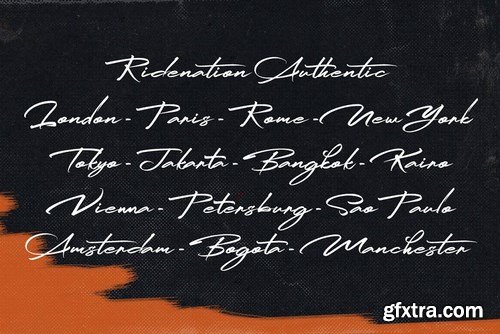 Ridenation Authentic
London - Paris - Rome - New York
Tokyo - Jakarta - Bangkok - Kairo
Vienna - Petersburg - Sao Paulo
Amsterdam - Bogota - Manchester
gfxtra.com